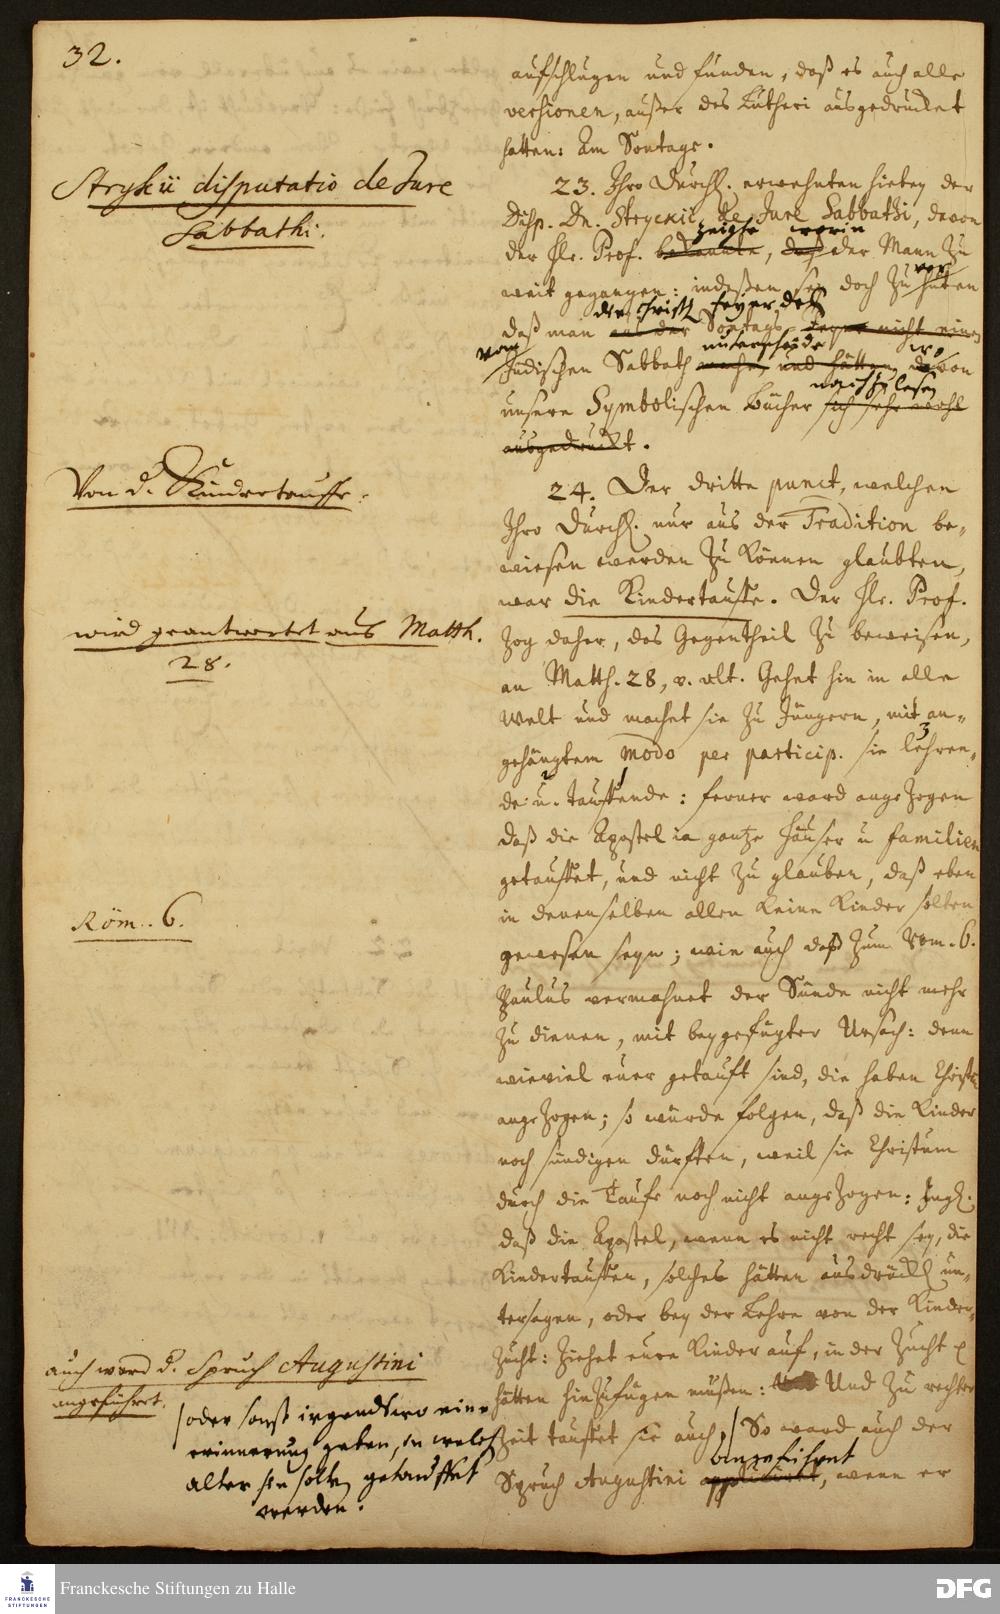 32.
aufschlugen und funden, daß es auch alle
versionen, außer des Lutheri ausgedruckt
hatten: Am Sontage.
Strykii disputatio de Jure
Sabbathi.
23. Ihro Durchl. erwehnten hiebey der
Disp. Dn. Stryckii de Jure Sabbathi, davon
zeigte worin
der Hr. Prof. bekannte, daß der Mann zu
vor
weit gegangen: indeßen sey doch zu hüten
die Christl. Feyer des
daß man aus der Sontags Feyer nicht einen
vom unterscheide wo
Jüdischen Sabbath machen und hätten davon
nachzulesen
unsere Symbolischen Bücher sich sehr wohl
ausgedruckt.
Von d. Kindertauffe.
24. Der dritte punct, welchen
Ihro Durchl. nur aus der Tradition be-
wiesen werden zu können glaubten,
war die Kindertauffe. Der Hr. Prof.
wird geantwortet aus Matth.
28.
zog daher, das Gegentheil zu beweisen,
an Matth. 28, v. ult. Gehet hin in alle
Welt und machet sie zu Jüngern, mit an-
3
gehängtem modo per particip. sie lehren-
2 1
de u. tauffende: ferner ward angezogen
daß die Apostel in gantze Häuser u familien
getauffet, und nicht zu glauben, daß eben
in denenselben allen keine Kinder solten
Röm. 6.
gewesen seyn; wie auch daß zum Röm. 6.
Paulus vermahnet der Sünde nicht mehr
zu dienen, mit beygefügter Ursach: denn
wieviel euer getauft sind, die haben Christum
angezogen; so würde folgen, daß die Kinder
noch sündigen dürfften, weil sie Christum
durch die Taufe noch nicht angezogen: Ingl.
daß die Apostel, wenn es nicht recht sey, die
Kindertauffen, solches hätten ausdrückl un-
tersagen, oder bey der Lehre von der Kinder-
zucht: Ziehet eure Kinder auf, in der Zucht
hätten hinzufügen müßen: Und zu rechter
Zeit tauffet sie auch / So ward auch der
angeführet
Spruch Augustini appliciret, wenn er
auch ward d. Spruch Augustini
angeführet.
/ oder sonst irgendswo eine
erinnerung geben, in welch
alter sie solten getauffet
werden.
Franckesche Stiftungen zu Halle
FRANCKESCHE
STIFTUNGEN
DFG